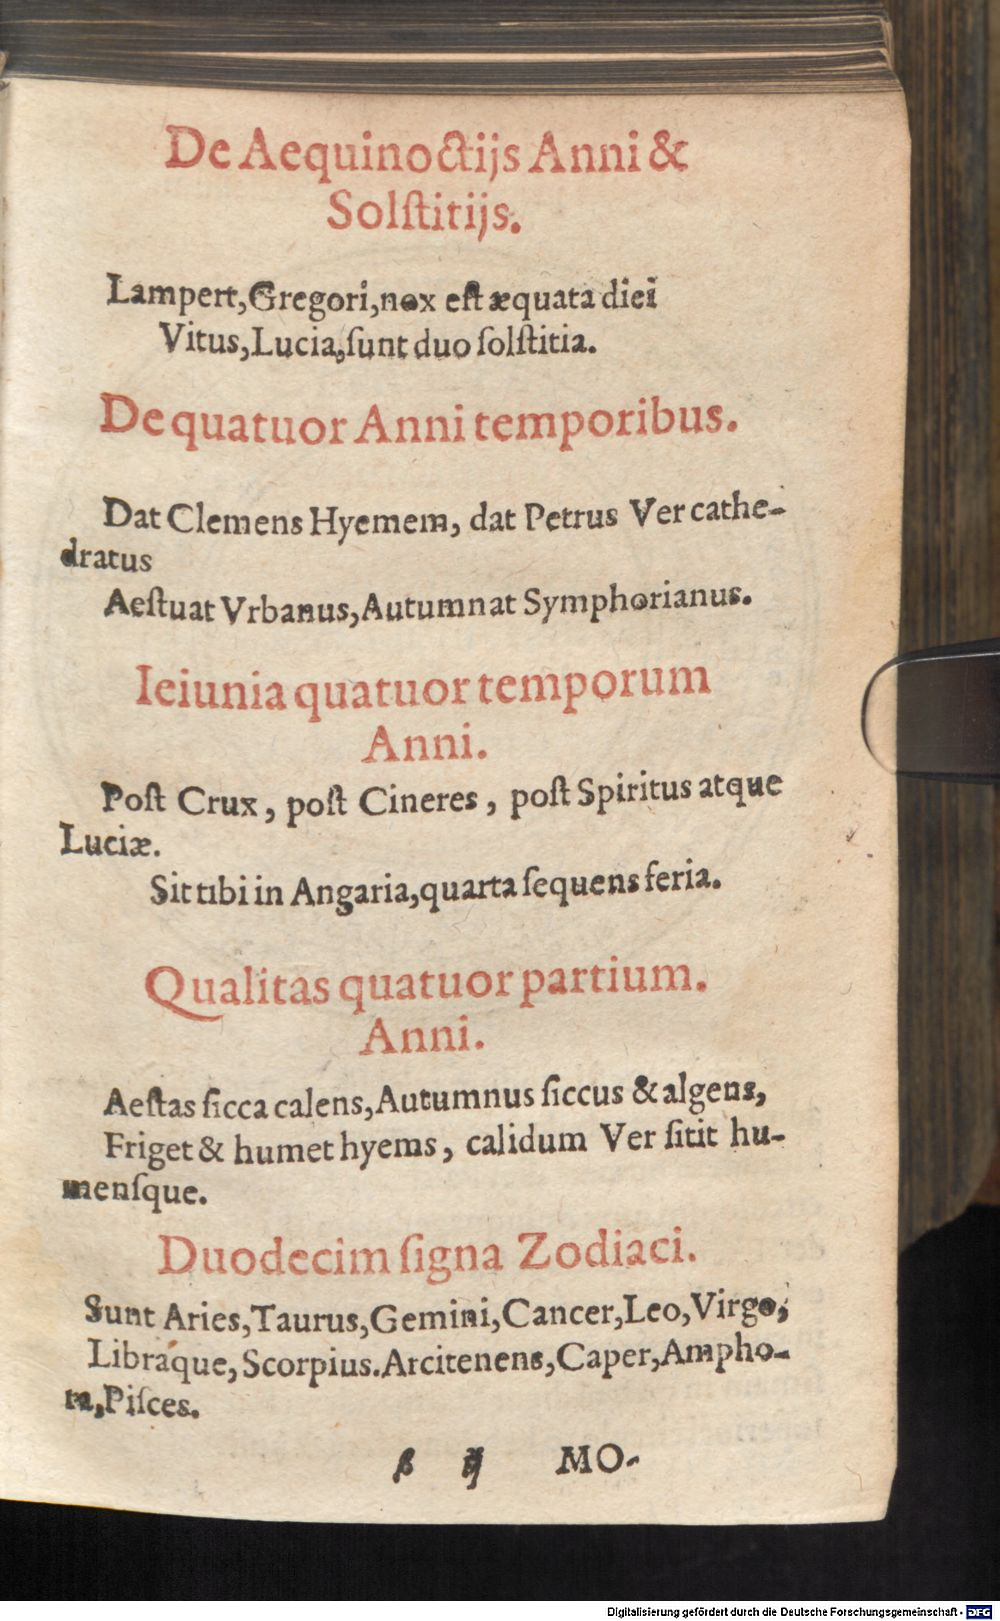 De Aequinoctijs Anni &
Solſtitijs.
Lampert, Gregori, nox eſt æquata diei
Vitus, Lucia, ſunt duo ſolſtitia.
De quatuor Anni temporibus.
Dat Clemens Hyemem, dat Petrus Ver cathe-
dratus
Aeſtuat Vrbanus, Autumnat Symphorianus.
Ieiunia quatuor temporum
Anni.
Poſt Crux, poſt Cineres, poſt Spiritus atque
Luciæ.
Sit tibi in Angaria, quarta ſequens feria.
Qualitas quatuor partium.
Anni.
Aeſtas ſicca calens, Autumnus ſiccus & algens,
Friget & humet hyems, calidum Ver ſitit hu-
menſque.
Duodecim ſigna Zodiaci.
Sunt Aries, Taurus, Gemini, Cancer, Leo, Virgo,
Libráque, Scorpius. Arcitenens, Caper, Ampho-
ra, Piſces.
β ij MO-
Digitalisierung gefördert durch die Deutsche Forschungsgemeinschaft - DFG